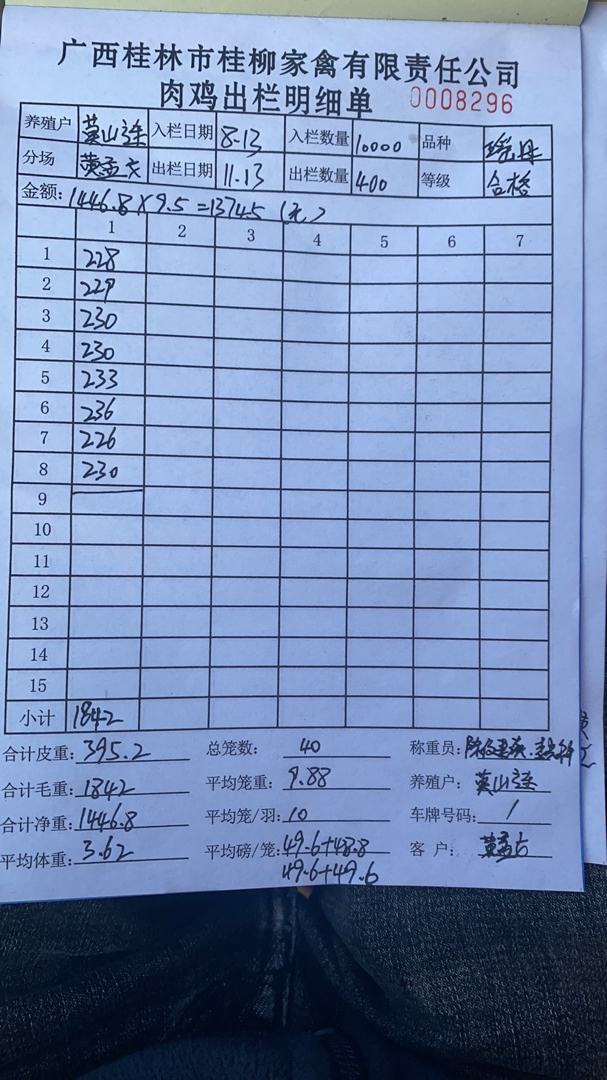 广西桂林市桂柳家禽有限责任公司
肉鸡出栏明细单 0008296
养殖户 黄山 入栏日期 8-13 入栏数量 10000 品种
分场 黄孟 出栏日期 11.13 出栏数量 400 等级 合格
金额: 1446.8×9.5=13745（元）
1 2 3 4 5 6 7
1 228
2 229
3 230
4 230
5 233
6 236
7 226
8 230
9
10
11
12
13
14
15
小计 1842
合计皮重: 395.2 总笼数: 40 称重员:
合计毛重: 1842 平均笼重: 9.88 养殖户: 黄山
合计净重: 1446.8 平均笼/羽: 10 车牌号码: /
平均体重: 3.62 平均磅/笼: 49.6+48.8 客 户: 黄孟
49.6+49.6